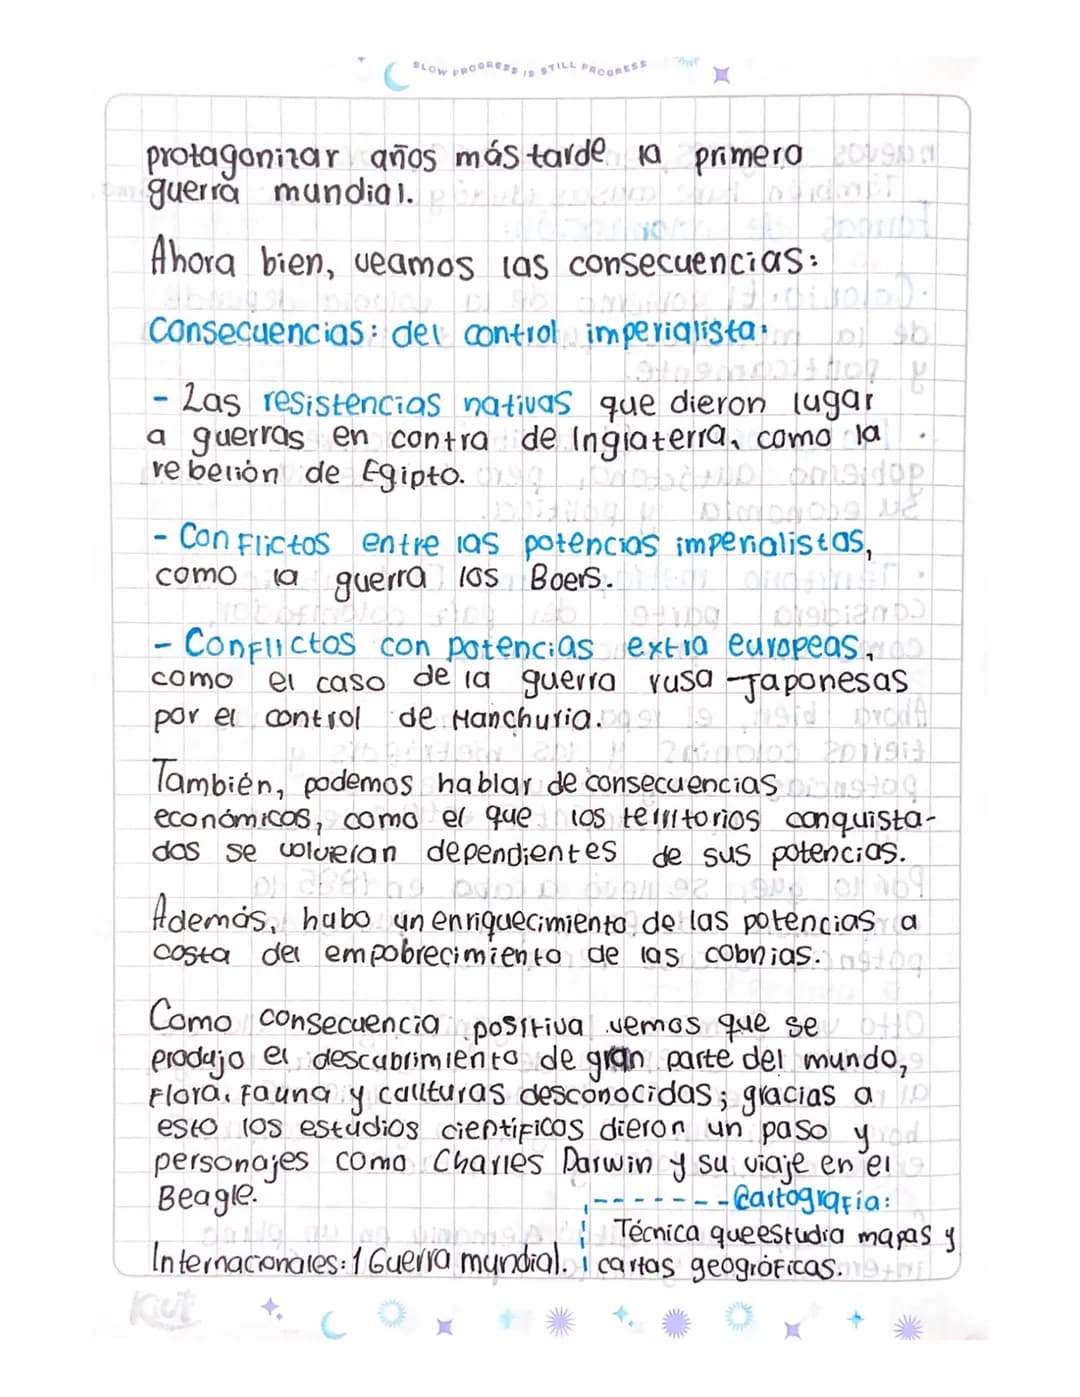 SLOW PROGRESS IS STILL PROGRESS
protagonizar años más tarde la primera
guerra mundial.
Ahora bien, veamos las consecuencias:
Consecuencias: del control imperialista:
- Las resistencias nativas que dieron lugar
a guerras en contra de Inglaterra, como la
rebelión de Egipto.
- Conflictos entre las potencias imperialistas,
como la guerra los Boers.
- Conflictos con potencias extra europeas,
como el caso de la guerra rusa Japonesas
por el control de Manchuria.
También, podemos hablar de consecuencias
económicas, como el que los territorios conquista-
das se volvieran dependientes de sus potencias.
Además, hubo un enriquecimiento de las potencias a
costa del empobrecimiento de las colonias.
Como consecuencia positiva vemos que se
produjo el descubrimiento de gran parte del mundo,
Flora, Fauna y cullturas desconocidas; gracias a
esto los estudios cientificos dieron un paso y
personajes como Charles Darwin y su viaje en el
Beagle.
Cartografía:
Técnica que estudia mapas y
cartas geográficas.
Internacionales: 1 Guerra mundial.
Kiut